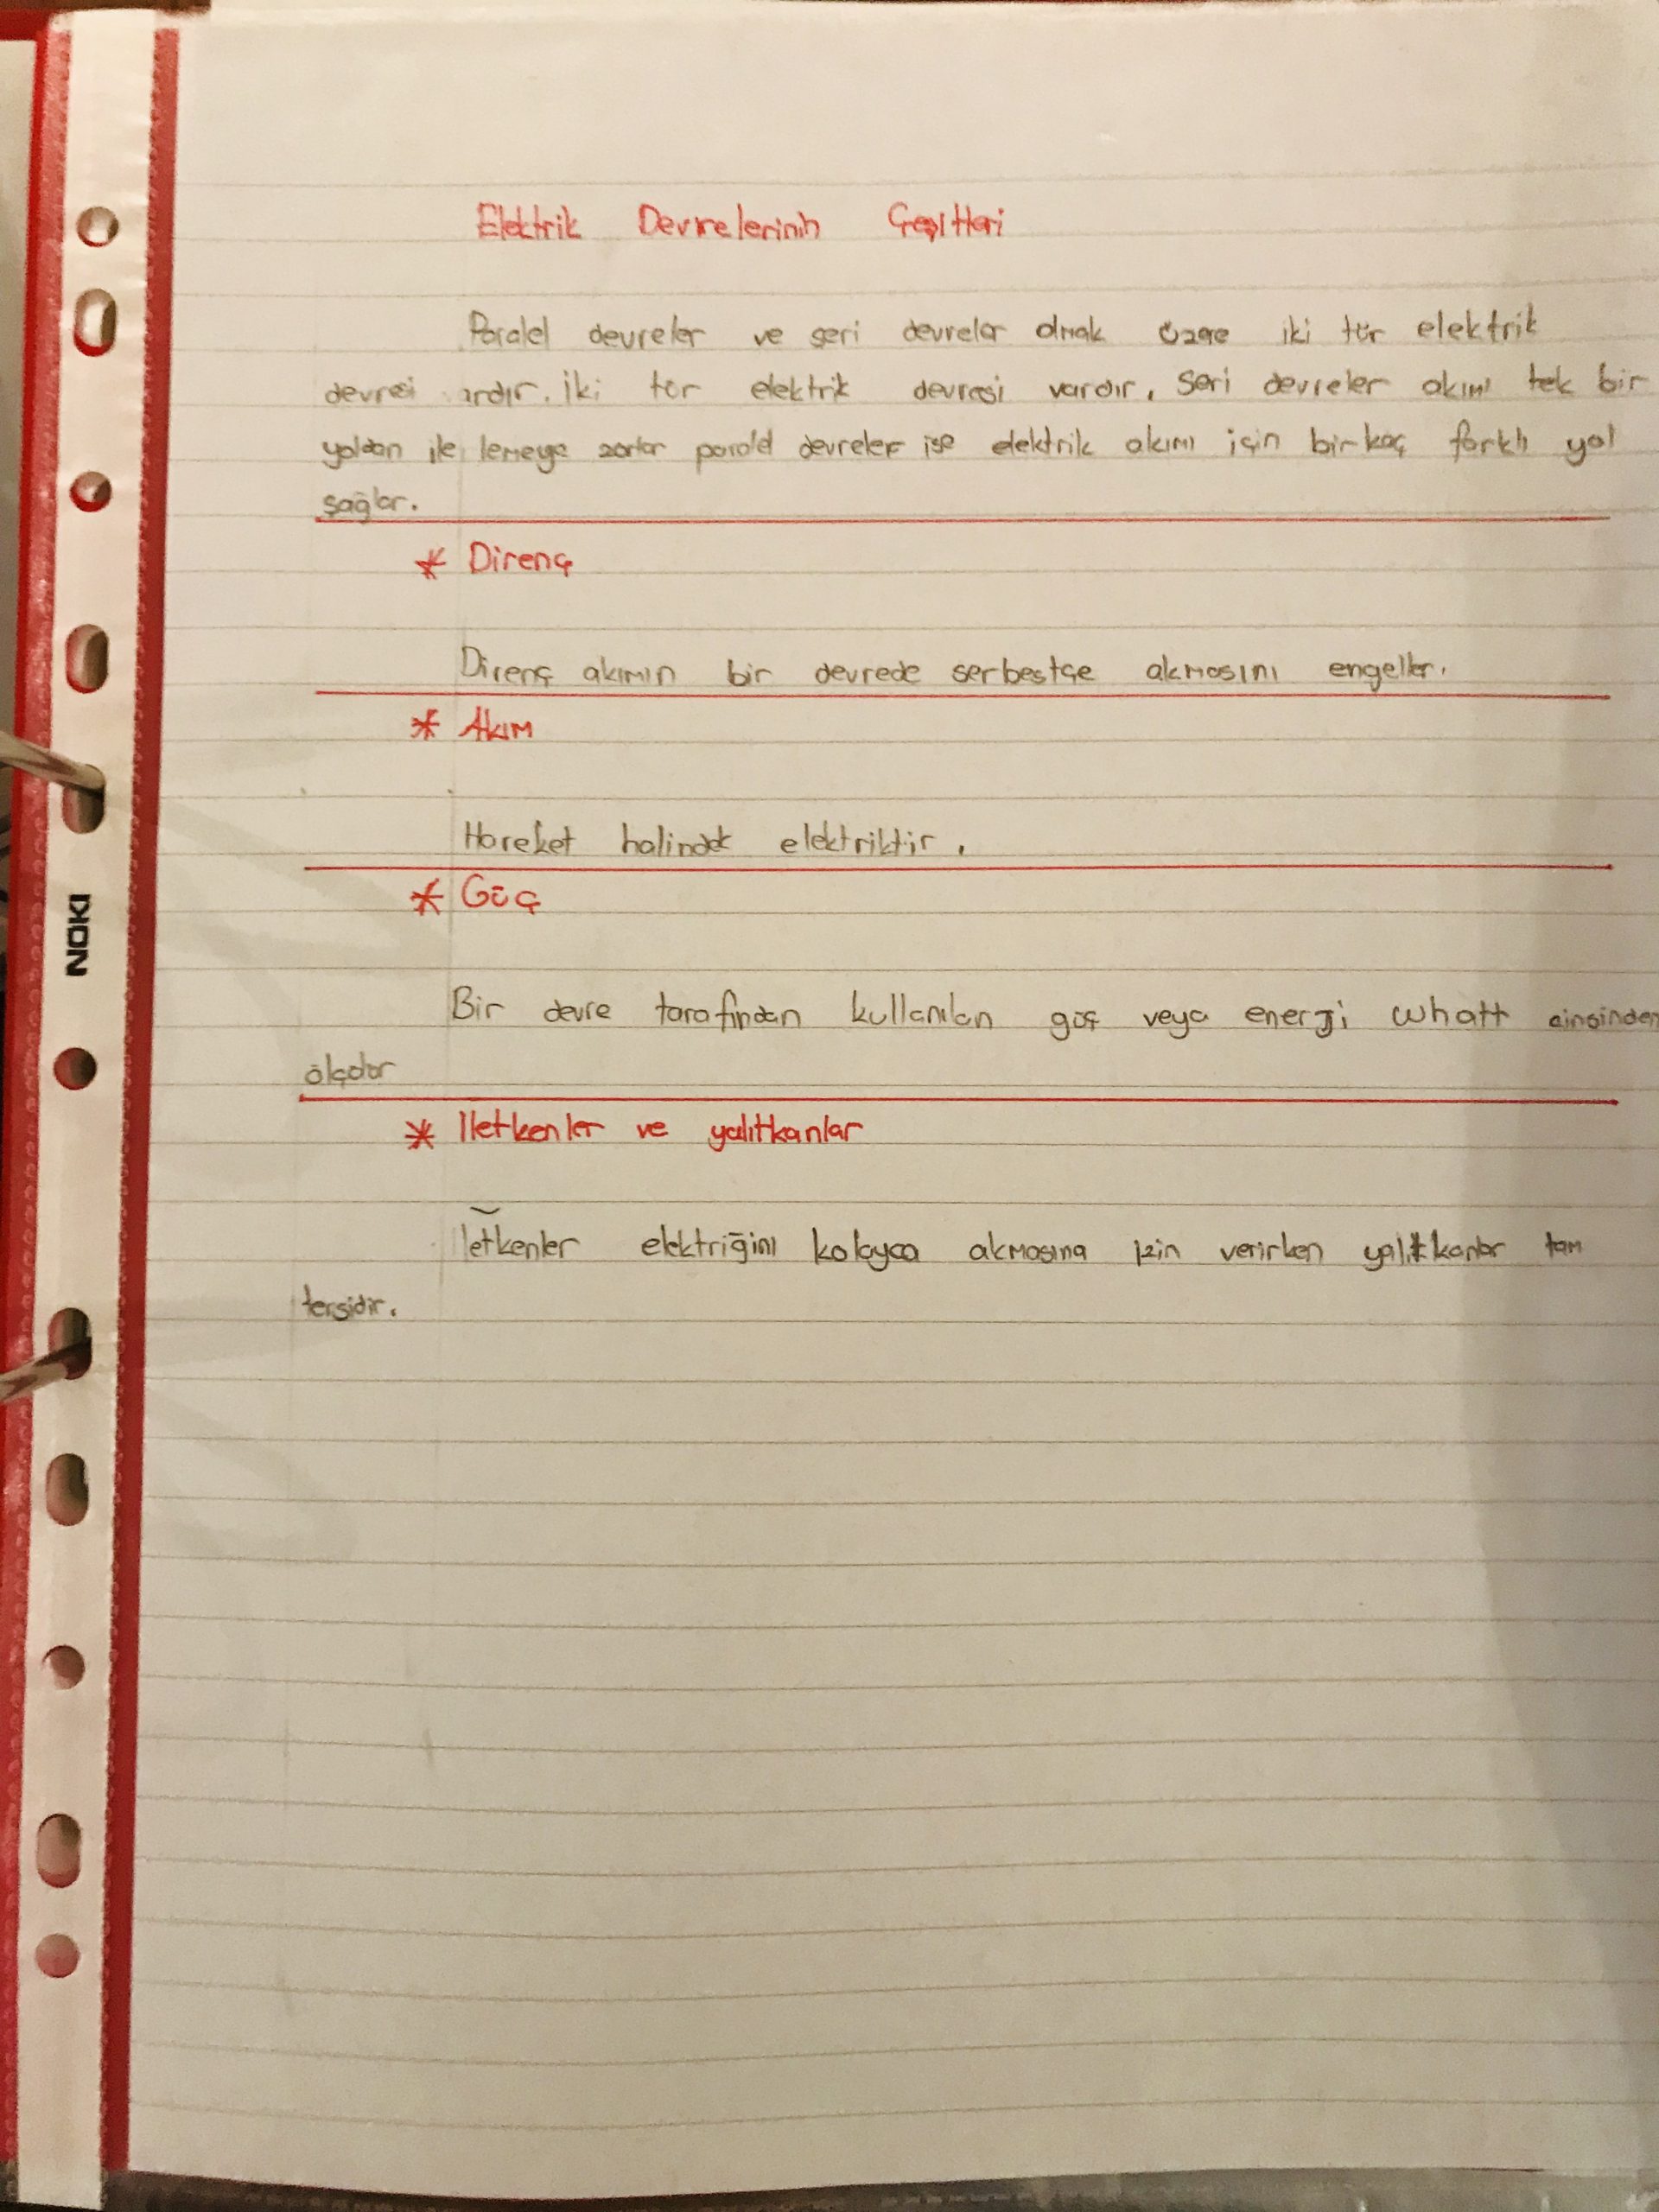 Elektrik Devrelerinin Çeşitleri
Paralel devreler ve seri devreler olmak üzere iki tür elektrik
devresi ardır. İki tür elektrik devresi vardır. Seri devreler akımı tek bir
yoldan ile lemeye zorlar paralel devreler ise elektrik akımı için birkaç farklı yol
sağlar.
* Direnç
Direnç akımın bir devrede serbestçe akmasını engeller.
* Akım
Hareket halindek elektriktir.
* Güç
NOKI
Bir devre tarafından kullanılan güç veya enerji whatt cinsinden
ölçülür
* Iletkenler ve yalıtkanlar
Iletkenler elektriğini kolayca akmasına izin verirken yalıtkanlar tam
tersidir.